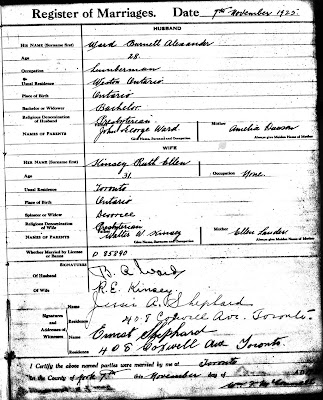 Register of Marriages. Date 7th November 1925.
HUSBAND
HIS NAME (Surname first) Ward Burnell Alexander
Age 28.
Occupation Lumberman
Usual Residence Weston Ontario
Place of Birth Ontario
Bachelor or Widower Bachelor
Religious Denomination of Husband Presbyterian
NAMES OF PARENTS John George Ward Mother Amelia Dawson
Give Name, Surname and Occupation Always give Maiden Name of Mother
WIFE
HER NAME (Surname first) Kinsey Ruth Ellen
Age 31. Occupation None.
Usual Residence Toronto
Place of Birth Ontario
Spinster or Widow Divorcee
Religious Denomination of Wife Presbyterian
NAMES OF PARENTS Walter W Kinsey Mother Ellen Lauder
Give Name, Surname and Occupation Always give Maiden Name of Mother
Whether Married by License or Banns D 85890
SIGNATURES
Of Husband B. A. Ward
Of Wife R. E. Kinsey
Name Jessie A. Shephard
Signatures and Addresses of Witnesses Residence 408 Coxwell Ave. Toronto
Name Ernest Shephard
Residence 408 Coxwell Ave Toronto.
I Certify the above named parties were married by me at Toronto
in the County of York 7th on November day of A.D.